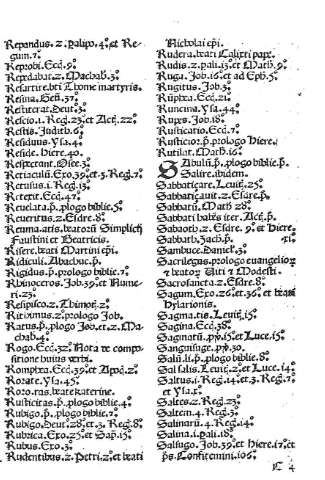 Repandus. 2. palipo. 4° et Re-
gum. 7°
Reprobi. Ecci. 9°
Repdabat. 2. Machab. 3°
Resartire. bti Thome martyris.
Resina. Gen. 37°
Restiterat. Deut. 3°
Rescio. 1. Reg. 23° et Act. 22°
Restis. Judith. 6°
Residuus. Ysa. 4°
Reside. Hiere. 40°
Resperent. Osee. 3°
Retiaculum. Exo. 39° et 3. Reg. 7°
Retusus. 1. Reg. 13°
Retexit. Ecci. 47°
Revelata. p. plogo biblie. 5°
Reveritus. 2. Esdre. 8°
Reuma. atis. beatorū Simplicij
Faustini et Beatricis.
Risere. beati Martini epi.
Ridiculi. Abachuc. p.
Rigidus. p. prologo biblie. 7°
Rhinoceros. Job. 39° et Nume-
ri. 23°
Resipisco. 2. Thimot. 2°
Rithimus. 2° prologo Job.
Ratus. p. plogo Job. et. 2. Ma-
chab. 4°
Rogo. Ecci. 32° Nota de compo-
sitione huius verbi.
Romphea. Ecci. 39° et Apoc. 2°
Rorate. Ysa. 45°
Roro. ras. beate katerine.
Rusticitas. p. plogo biblie. 4°
Rubigo. p. plogo biblie. 7°
Rubigo. Deut. 28° et 3. Reg. 8°
Rubrica. Exo. 25° et Sap. 15°
Rubus. Exo. 3°
Rudentibus. 2. Petri. 2° et beati
Nicholai epi.
Rudera. beati Calixti pape.
Rudis. 2. pali. 13° et Math. 9°
Ruga. Job. 16° et ad Eph. 5°
Rugitus. Job. 3°
Ruptra. Ecci. 21°
Runcina. Ysa. 44°
Rupes. Job. 18°
Rusticatio. Ecci. 7°
Rusticior. p. prologo Hiere.
Rutilat. Math. 16°
Sabulū. p. plogo biblie. p.
Salire. ibidem.
Sabbaticare. Levit. 25°
Sabbaticavit. 2. Esdre. p.
Sabbatū. Math 28°
Sabbati habēs iter. Act. p.
Sabaoth. 2. Esdre. 9° et Hiere.
Sabbath. Zach. p. xi°
Sambuce. Daniel. 3°
Sacrilegus. prologo evangelior
et beator Viti et Modesti
Sacrosancta. 2. Esdre. 8°
Sagum. Exo. 26° et. 36° et beati
hylarionis.
Sagma. tis. Levit. 15°
Sagina. Ecci. 38°
Saginatū. pv. 15° et Luce. 15°
Sanguisuge. pv. 30.
Salū. li. p. plogo biblie. 8°
Sal salis. Levit. 2° et Luce. 14°
Saltus. 1. Reg. 14° et 3. Reg. 7°
et Ysa. x°
Saltes. 2. Reg. 23°
Saltem. 4. Reg. 3°
Salinarū. 4. Reg. 14°
Salina. 1. pali. 18°
Salsugo. Job. 39° et Hiere. 17° et
ps. Confitemini. 106°
C 4